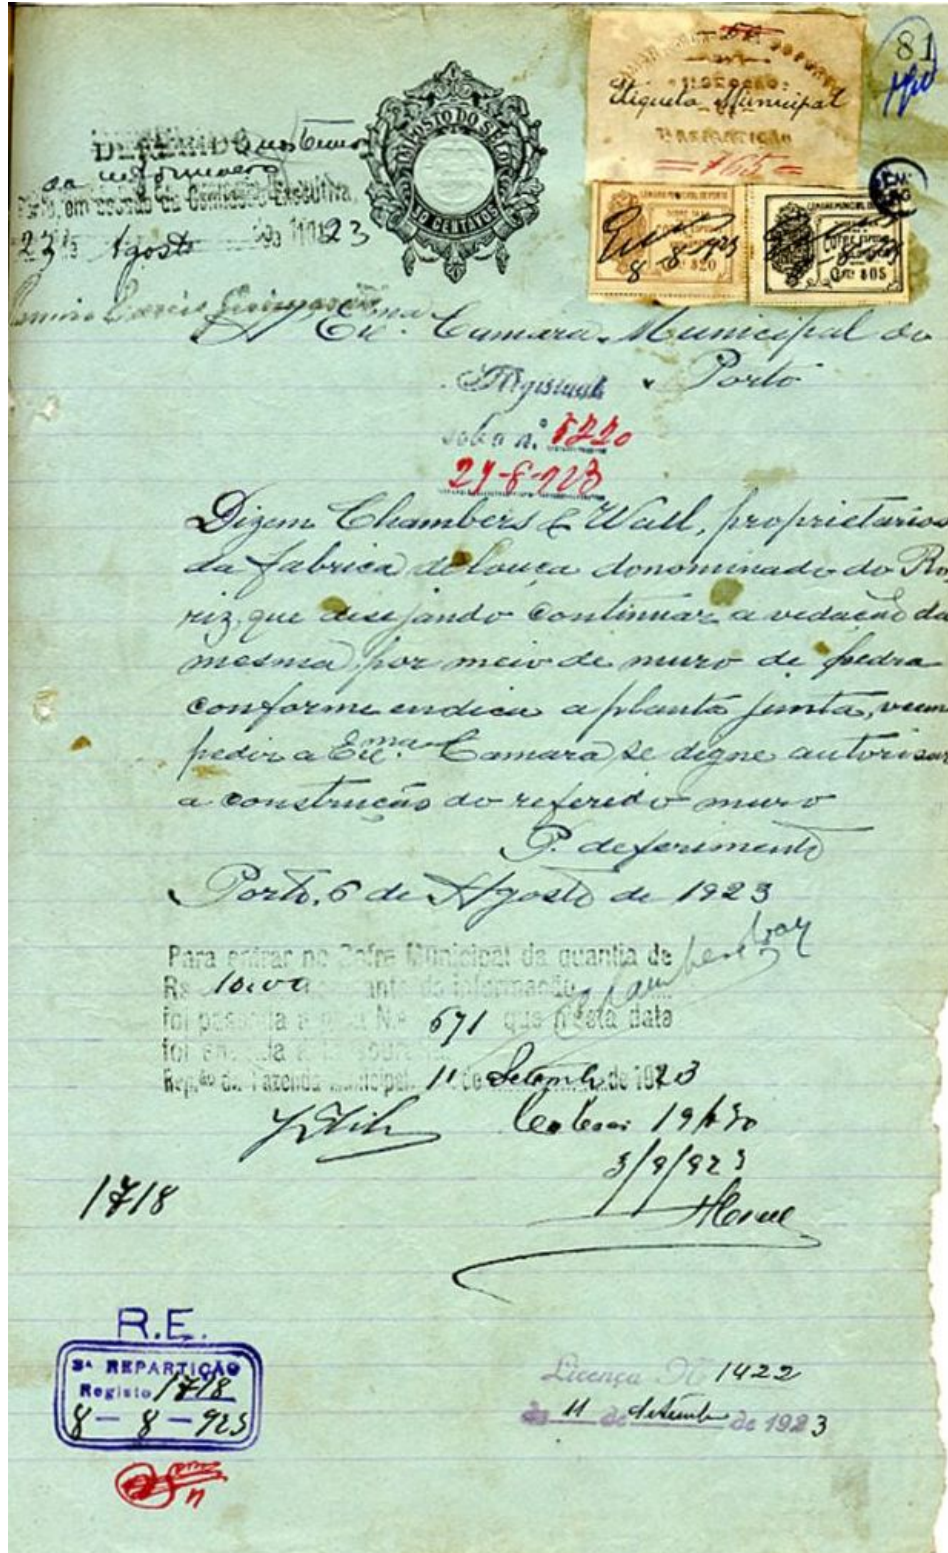 81
Etiqueta Municipal
=$65=
IMPOSTO DO SELO
10 CENTAVOS
DEFERIDO nos termos
da informação
Porto, em sessão da Comissão Executiva,
23 de Agosto de 1923
CAMARA MUNICIPAL DO PORTO
8-8-923
$20
COFRE
$05
A Exma. Camara Municipal do
Porto
Registado
sob o n.º 5220
-8-923
Dizem Chambers & Wall, proprietarios
da fabrica de louça donominado do Ro
riz, que desejando continuar a vedação da
mesma por meio de muro de pedra
conforme endica a planta junta, veem
pedir a Exma. Camara se digne autorisar
a construção do referido muro
P. deferimento
Porto, 6 de Agosto de 1923
Para entrar no Cofre Municipal da quantia de
Rs. constante da informação
foi passada a guia N.º 671 que n'esta data
foi enviada á Tesouraria.
Rep.ão da Fazenda Municipal, 11 de Setembro de 1923
3/9/923
1718
R.E.
3ª REPARTIÇÃO
Registo 1718
8 — 8 — 923
Licença Nº 1422
de 11 de Setembro de 1923